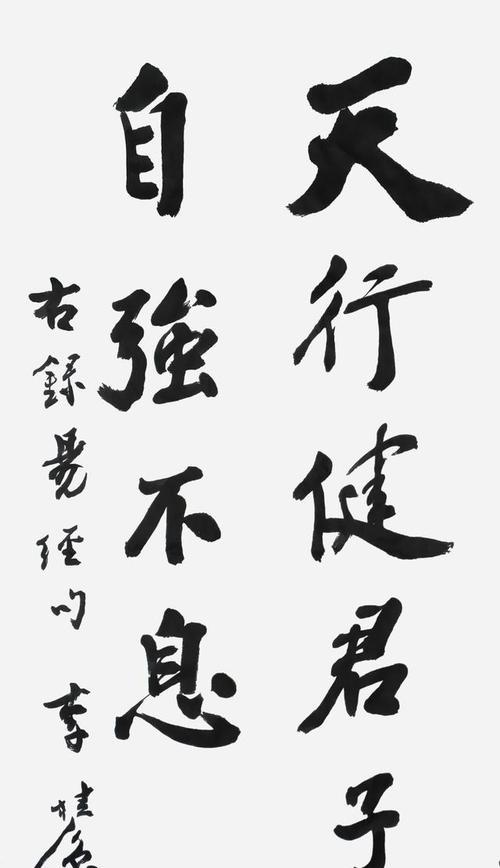 天行健君子
自強不息
右錄易經句 李桂